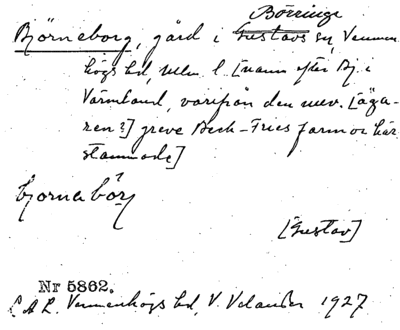 Börringe
Björneborg, gård i Gustavs sn, Vemmen-
högs hd, Mlm l. [namn efter Bj. i
Värmland, varifrån den nuv. [äga-
ren?] greve Beck-Friis farmor här-
stammade]
[Gustav]
Nr 5862.
L.A.R. Vemmenhögs hd, V. Velander 1927